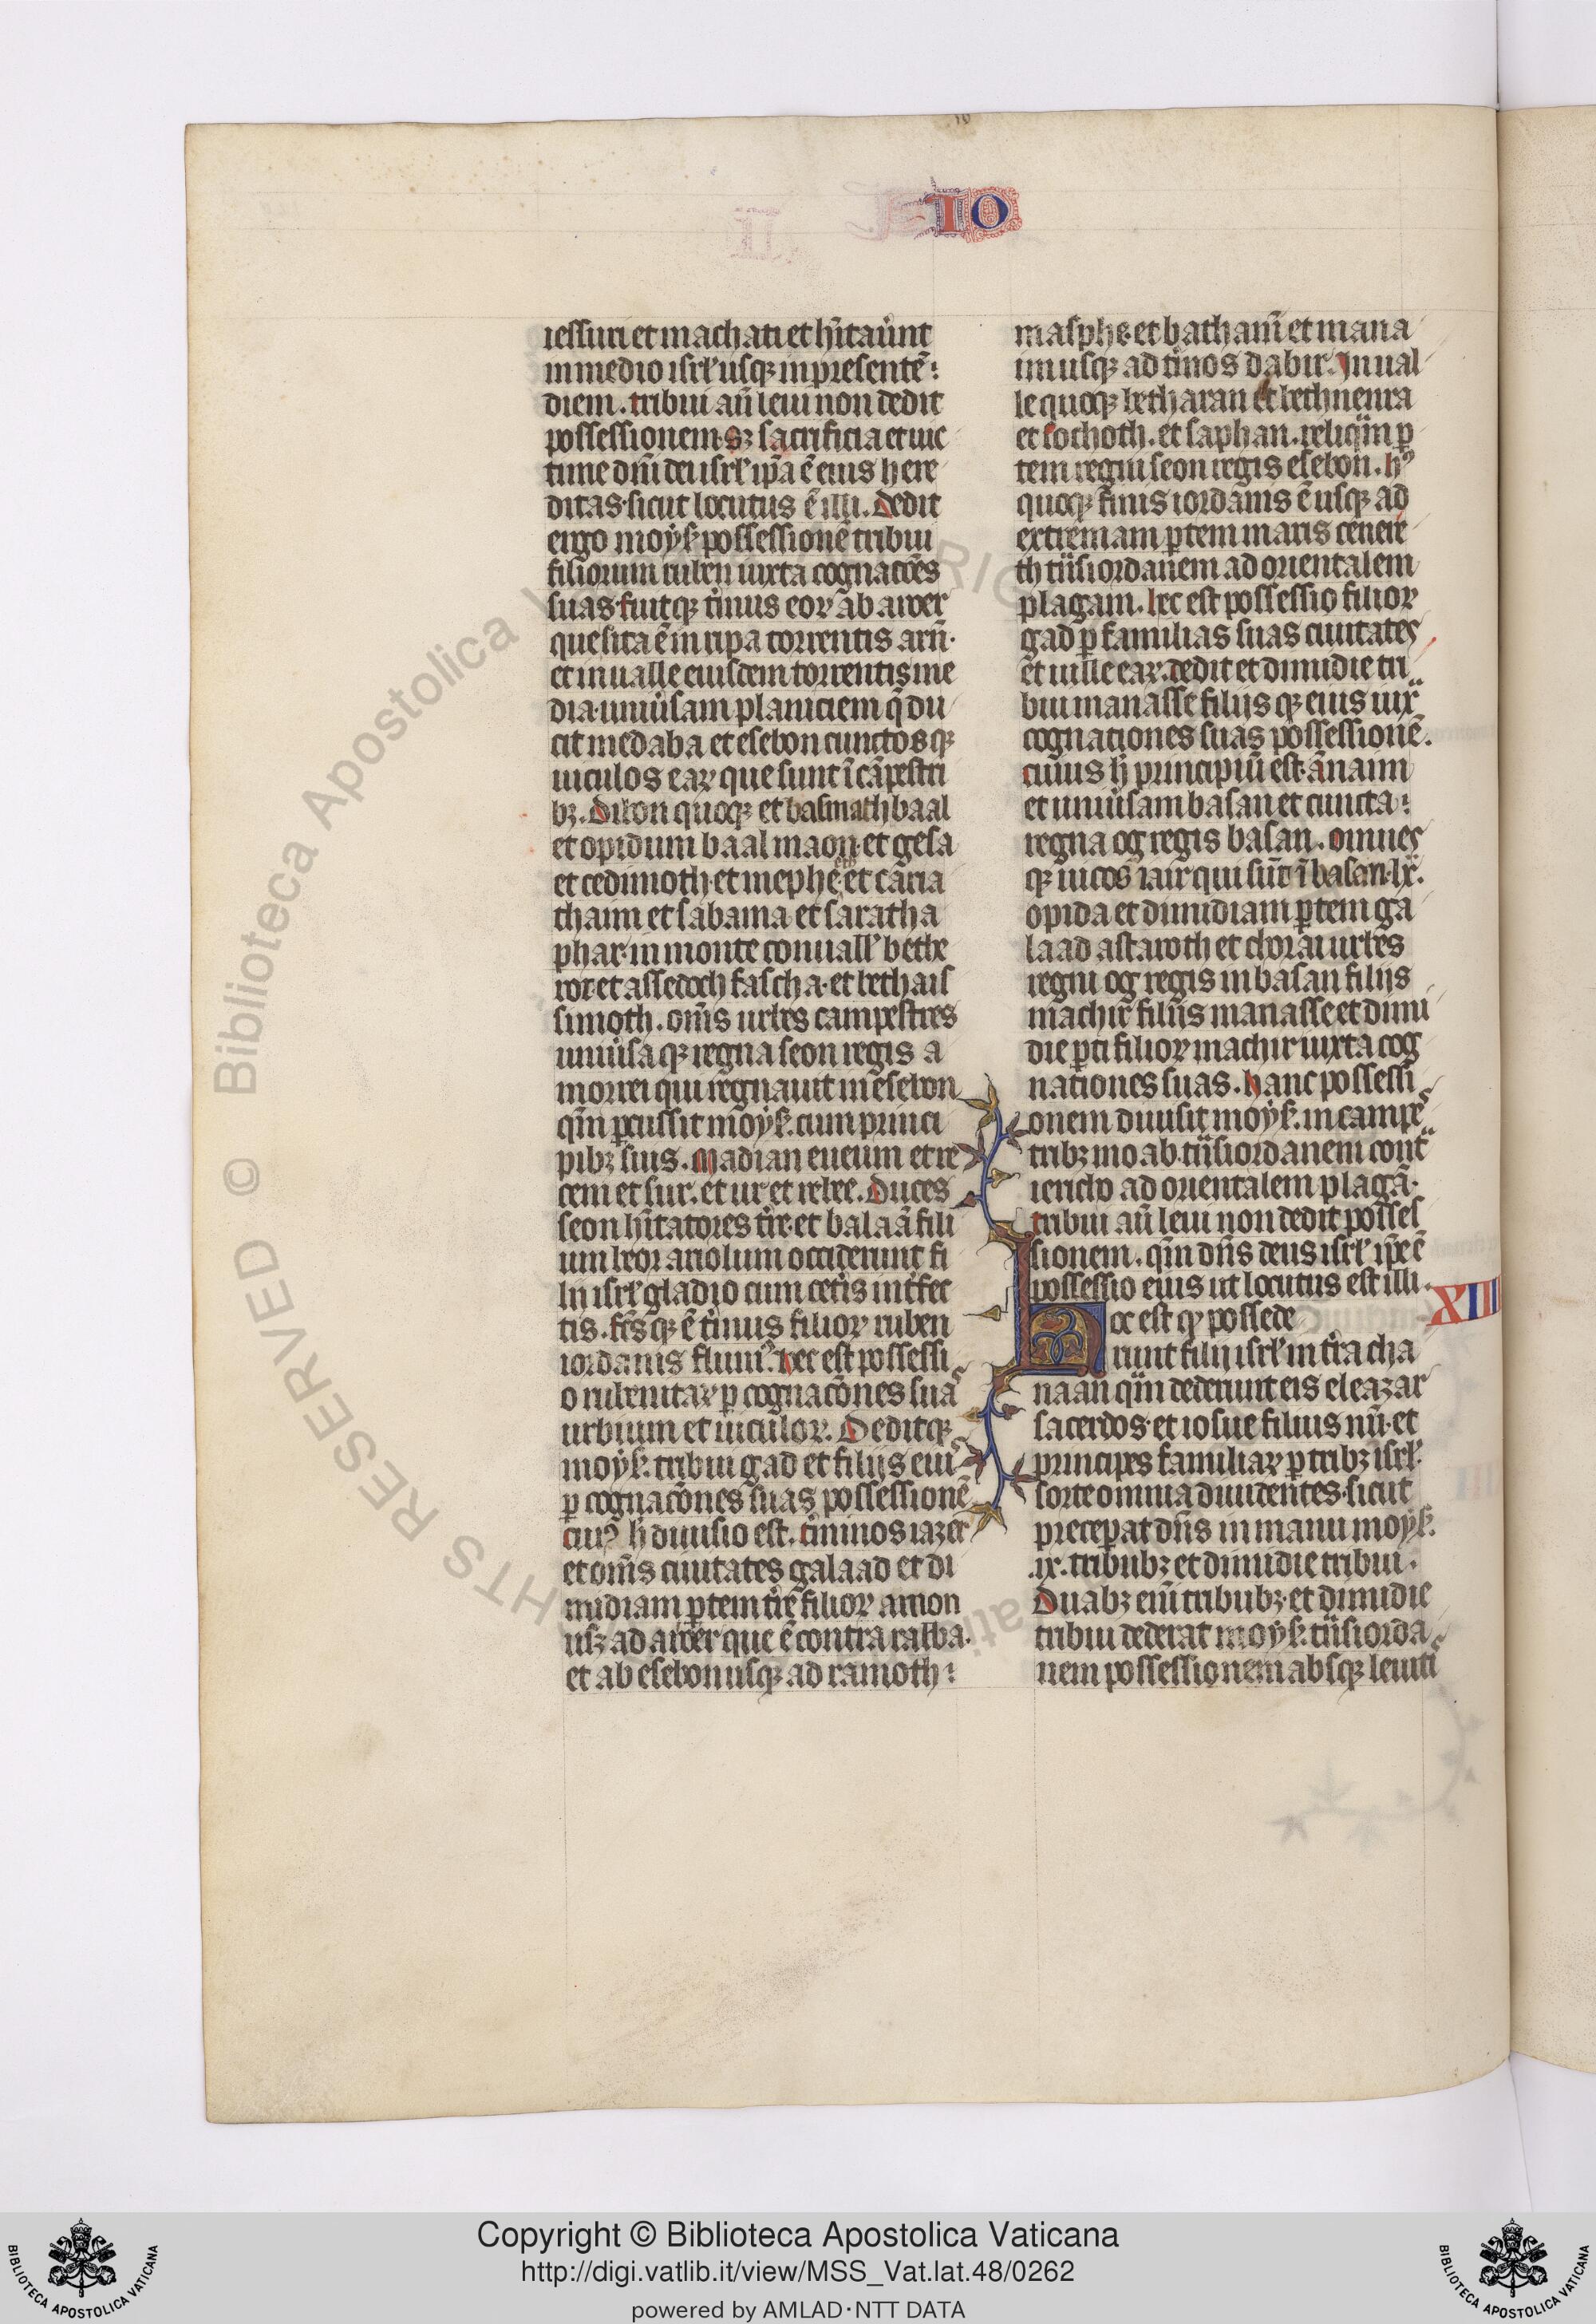 IO
iessuri et machati et hĩtaũnt
in medio isrl̃ usqꝫ in presentẽ:
diem. tribui aũ leui non dedit
possessionem. sꝫ sacrificia et uic
time dñi dei isrl̃ ip̃a ẽ eius here
ditas. sicut locutus ẽ illi. Dedit
ergo moẏs̃ possessionẽ tribui
filiorum ruben iuxta cognacõẽs
suas. fuitqꝫ tĩnus eoꝝ ab aroer
que sita ẽ in ripa torrentis arñ.
et in ualle eiusdem torrentis me
dia. uniũsam planiciem q̃ du
cit medaba et esebon cunctosqꝫ
uiculos eaꝝ que sunt ĩ cãpestri
bꝫ. Dibon quoqꝫ et basmath baal
et opidum baal maon. et gesa
et cedimoth. et mephe. et caria
thaim et sabama et saratha
phar. in monte conuall̃ bethe
ror. et assedoch fascha. et bethais
simoth. om̃s urbes campestres
uniũsaqꝫ regna seon regis a
morrei qui regnauit in esebon
qm̃ ꝑcussit moẏs̃. cum princi
pibꝫ suis. Madian eueum et re
cem et sur. et ur et rebee. Duces
seon hĩtatores tr̃e. et balaã fili
um beor ariolum occiderunt fi
lii isrl̃ gladio cum cetĩs int̃fec
tis. fc̃sqꝫ ẽ tĩnus filioꝝ ruben
iordanis fluuiꝰ. hec est possessi
o rubenitaꝝ ꝑ cognacõnes suas
urbium et uiculoꝝ. Deditqꝫ
moẏs̃. tribui gad et filiis eius
ꝑ cognacõnes suas possessionẽ
cuiꝰ h̃ diuisio est. tĩminos iazer
et om̃s ciuitates galaad et di
midiam ꝑtem tr̃e filioꝝ amon
usqꝫ ad aroer que ẽ contra rabba.
et ab esebon usqꝫ ad ramoth:
masphe. et bathanĩ et mana
im usqꝫ ad tĩnos dabir. In ual
le quoqꝫ betharan et bethnemra
et sochoth. et saphan. reliqũm ꝑ
tem regni seon regis esebon. hꝰ
quoqꝫ finis iordanis ẽ usqꝫ ad
extremam ꝑtem maris cenere
th tñsiordanem ad orientalem
plagam. hec est possessio filioꝝ
gad ꝑ familias suas ciuitates
et uille eaꝝ. dedit et dimidie tri
bui manasse filiisqꝫ eius iux̃
cognationes suas possessionẽ.
cuius h̃ principiũ est. a manaim
et uniũsam basan et cuncta:
regna og regis basan. omnes
qꝫ uicos iair qui sũt ĩ basan. lx.
opida et dimidiam ꝑtem ga
laad astaroth et edrai urbes
regni og regis in basan filiis
machir filiis manasse et dimi
die ꝑti filioꝝ machir iuxta cog
nationes suas. hanc possessi
onem diuisit moẏs̃. in campes
tribꝫ moab. tñsiordanem cont̃
iericho ad orientalem plagã.
tribui aũ leui non dedit posses
sionem. qm̃ dñs deus isrl̃ ip̃e ẽ
possessio eius ut locutus est illi.
XIIII
Hoc est qꝫ possede
runt filii isrl̃ in tr̃a cha
naan qm̃ dederunt eis eleazar
sacerdos et iosue filius nũ. et
principes familiaꝝ ꝑ tribꝫ isrl̃.
sorte omnia diuidentes. sicut
preceperat dñs in manu moẏs̃.
.ix. tribubꝫ et dimidie tribui.
Duabꝫ enĩ tribubꝫ. et dimidie
tribui dederat moẏs̃. tñsiorda
nem possessionem absqꝫ leuitis
© Biblioteca Apostolica Vaticana
RIGHTS RESERVED
Copyright © Biblioteca Apostolica Vaticana
http://digi.vatlib.it/view/MSS_Vat.lat.48/0262
powered by AMLAD·NTT DATA
BIBLIOTECA APOSTOLICA VATICANA
BIBLIOTECA APOSTOLICA VATICANA